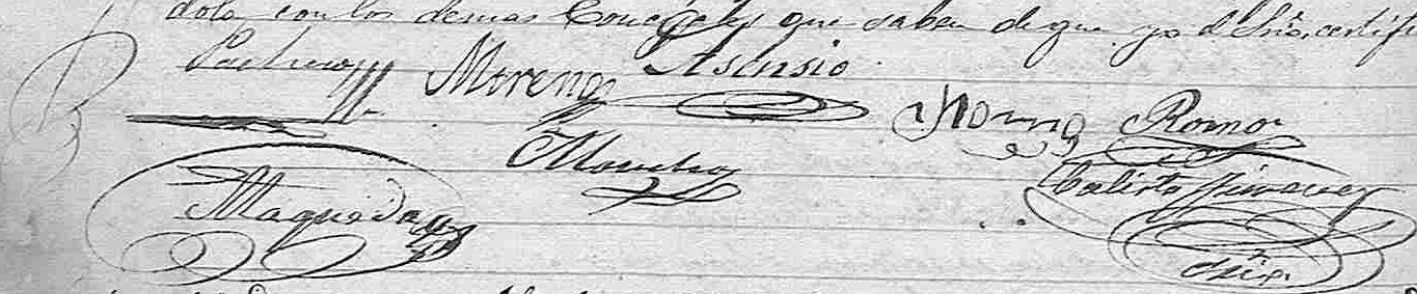 dola con los demas Concejales que saben de que yo el Srio, certifi
Pacheco Moreno Asensio
Romo Romo
Maqueda Calisto Jimenez
Srio.